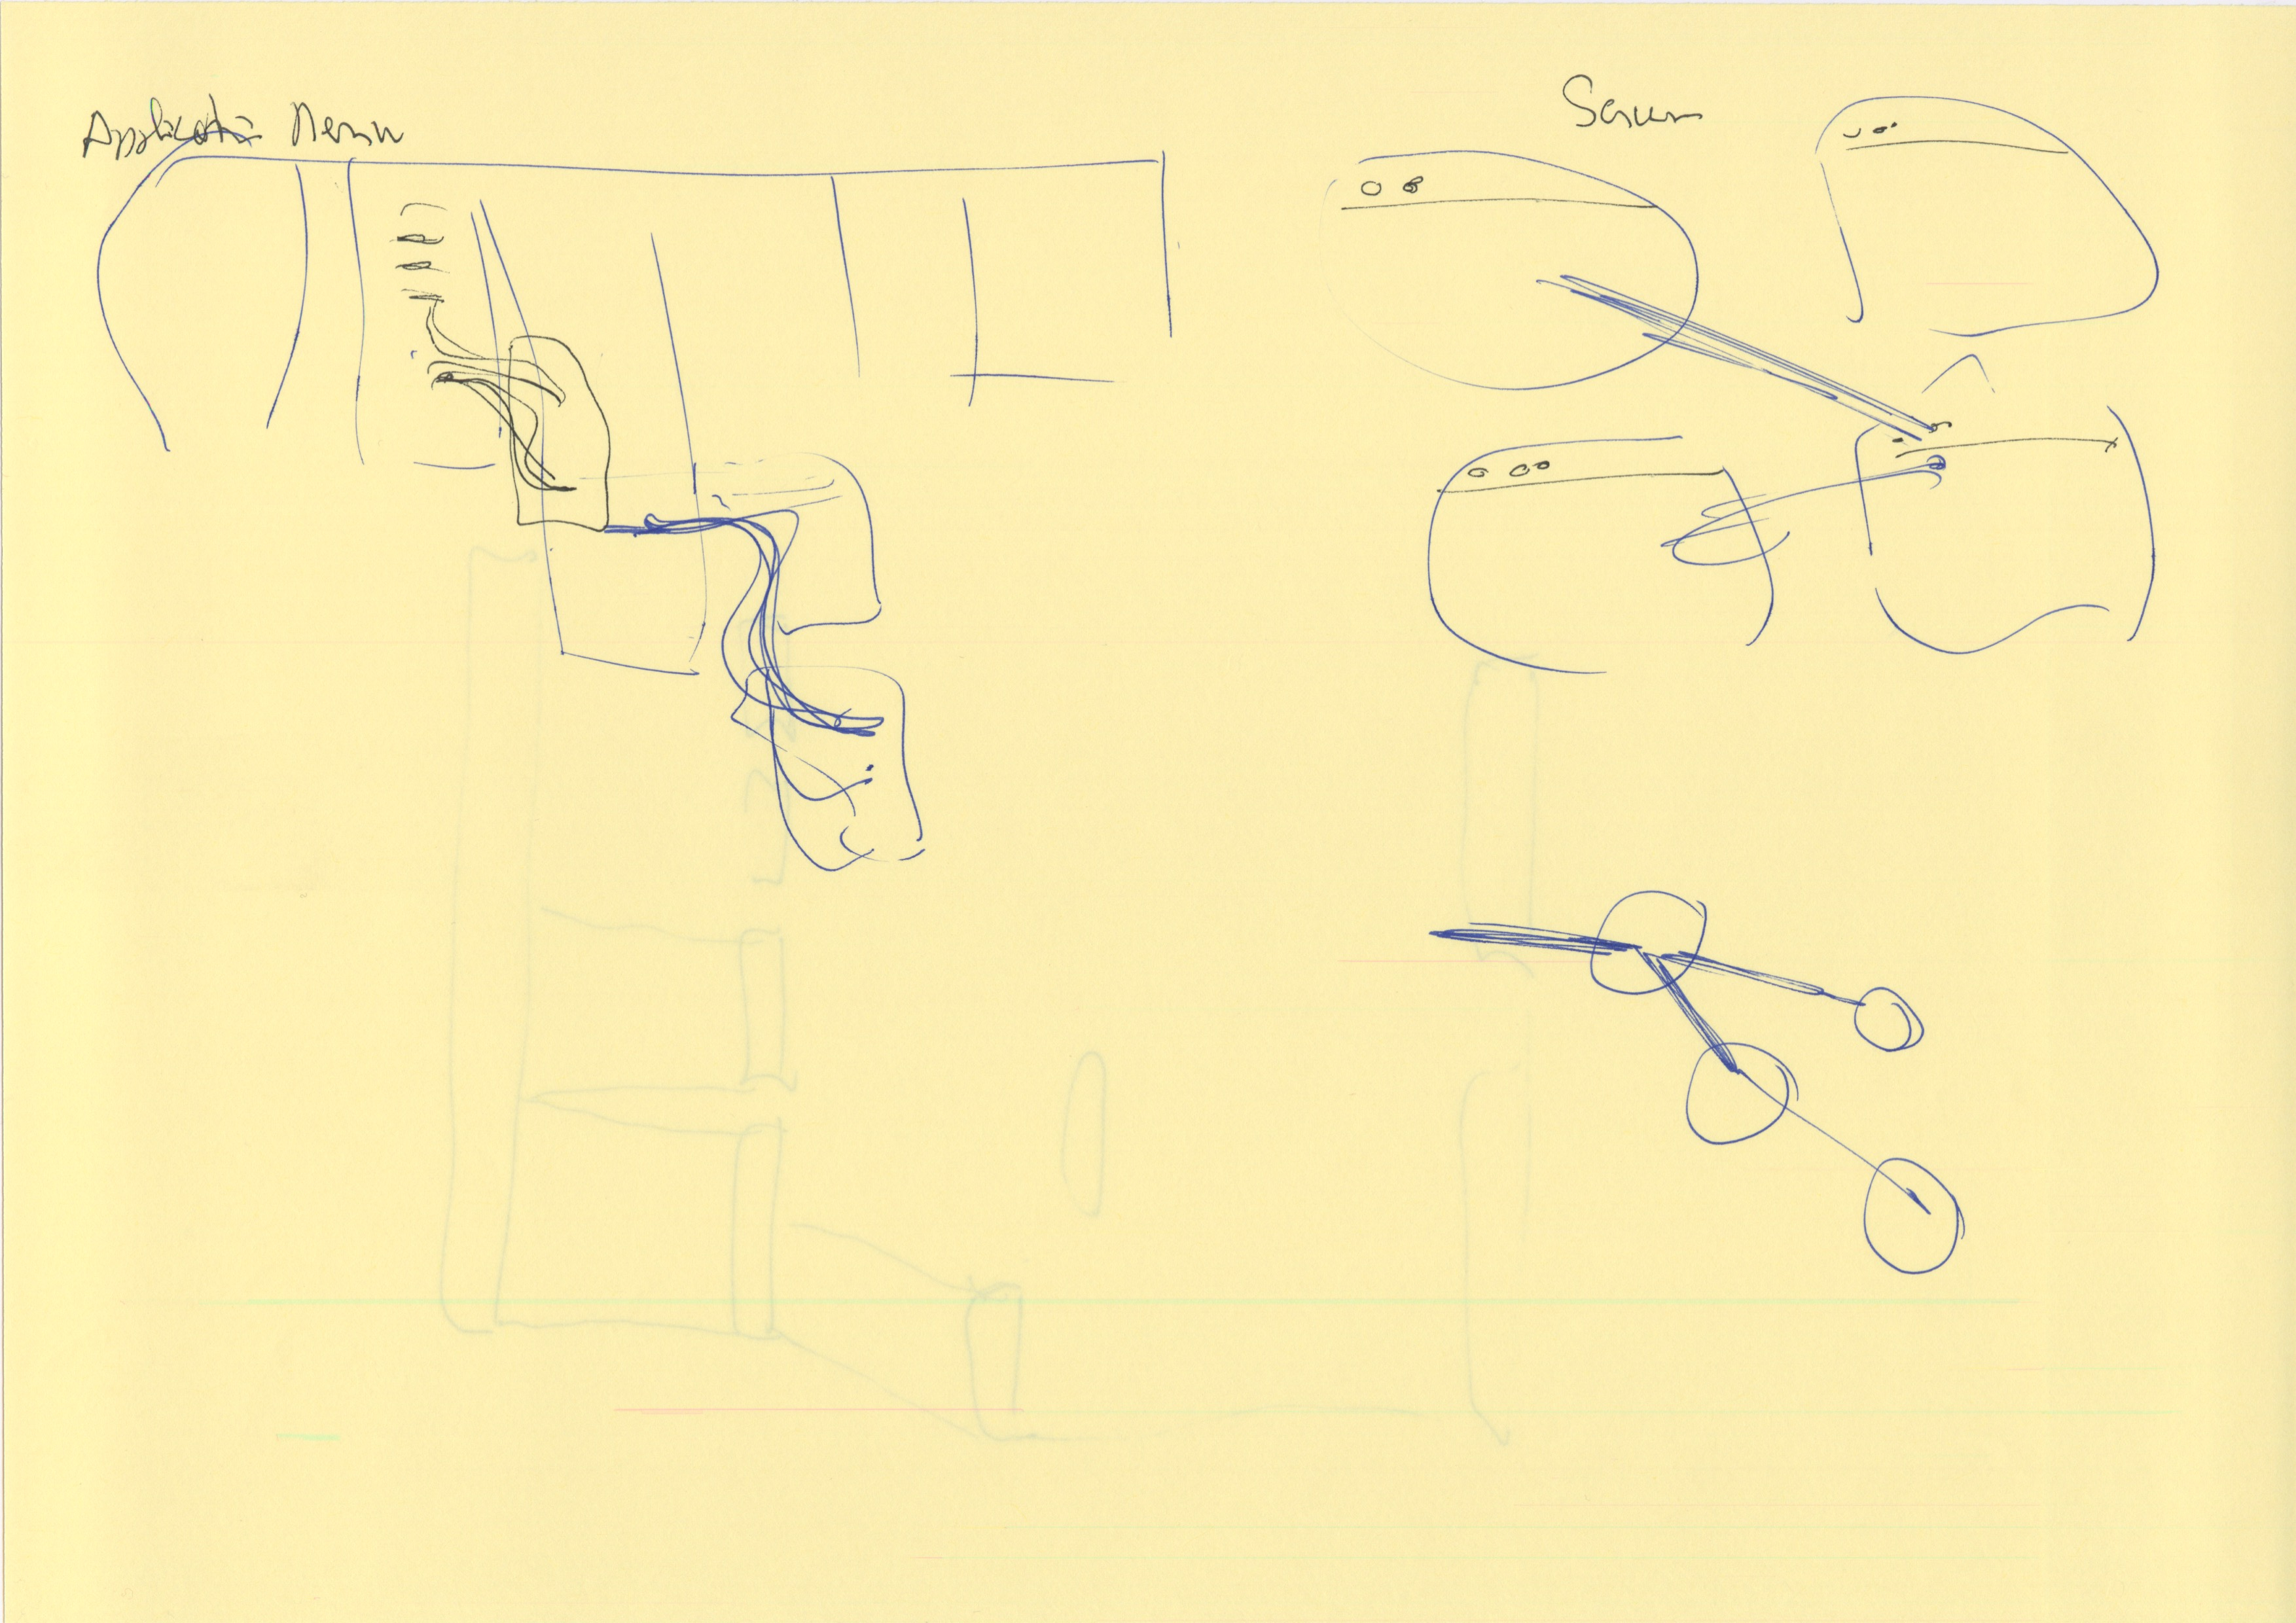 Application Menu
Screen